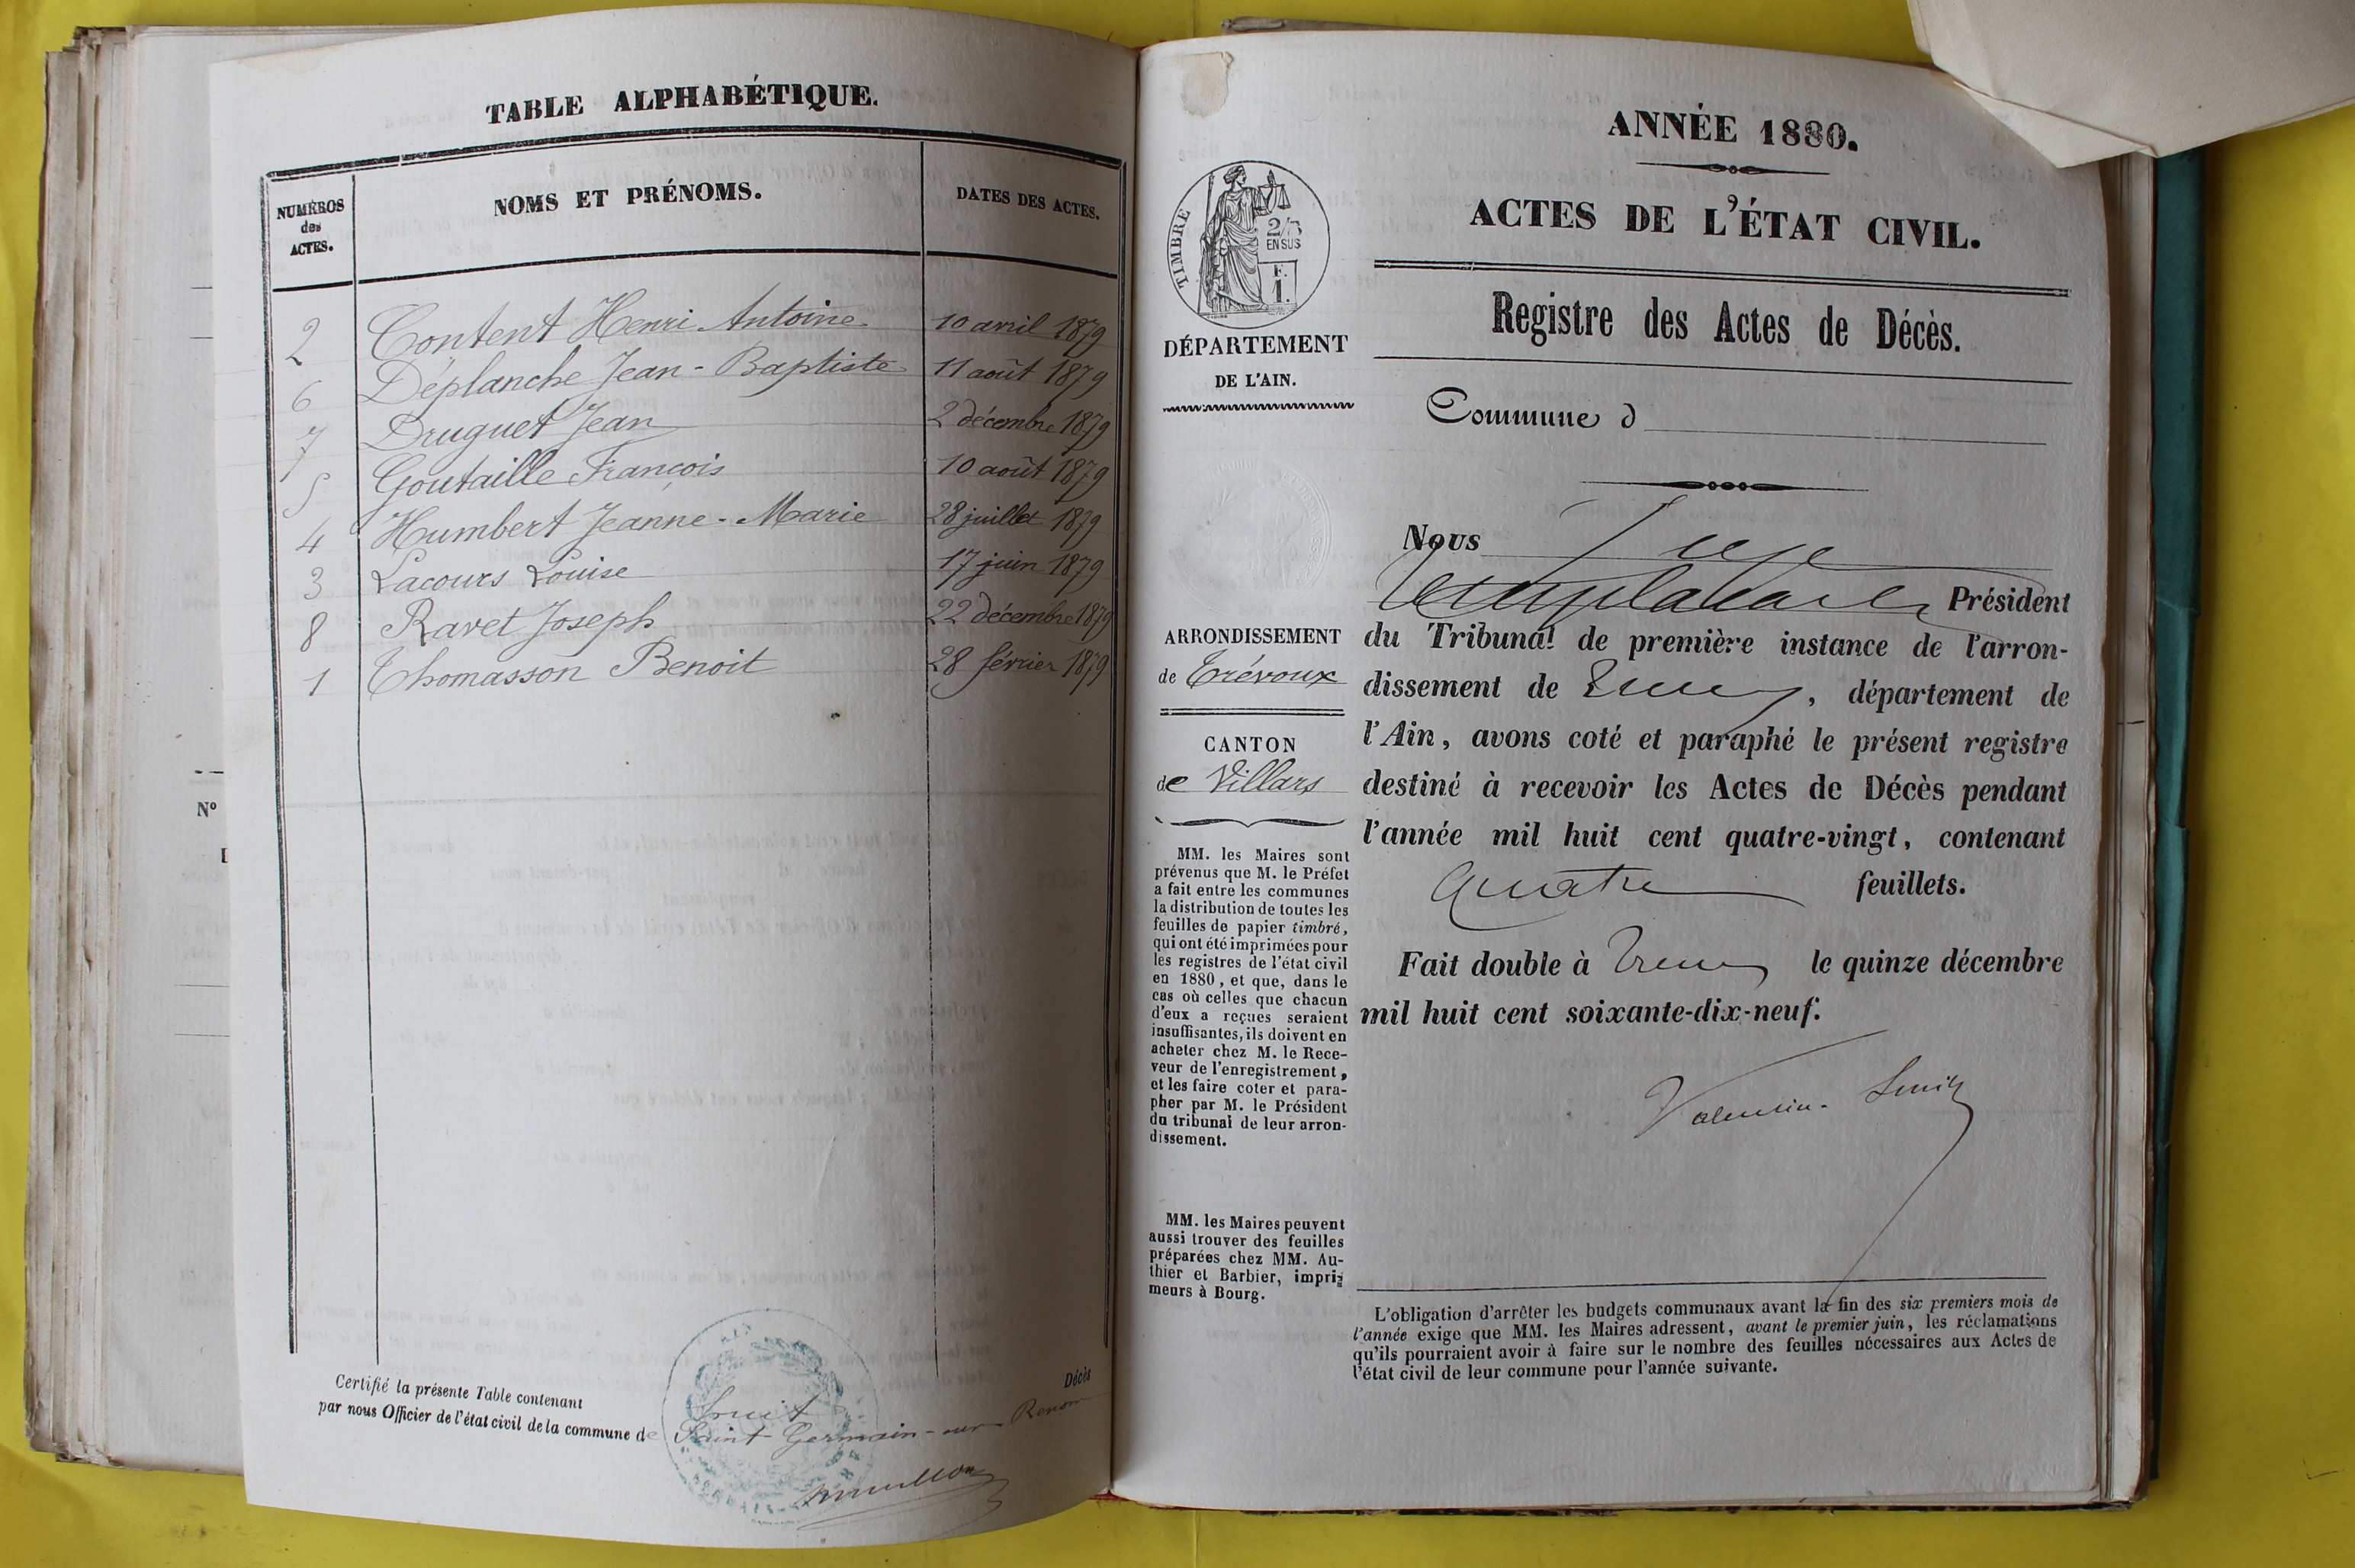 TABLE ALPHABÉTIQUE.
NUMÉROS
des
ACTES.
NOMS ET PRÉNOMS.
DATES DES ACTES.
2 Content Henri Antoine 10 avril 1879
6 Déplanche Jean-Baptiste 11 août 1879
7 Druguet Jean 2 décembre 1879
5 Goutaille François 10 août 1879
4 Humbert Jeanne-Marie 28 juillet 1879
3 Lacours Louise 17 juin 1879
8 Ravet Joseph 22 décembre 1879
1 Thomasson Benoit 28 février 1879
Certifié la présente Table contenant huit Décès
par nous Officier de l'état civil de la commune de Saint-Germain-sur-Renom
Nº
TIMBRE
2/10
EN SUS
DÉPARTEMENT
DE L'AIN.
ARRONDISSEMENT
de Trévoux
CANTON
de Villars
MM. les Maires sont
prévenus que M. le Préfet
a fait entre les communes
la distribution de toutes les
feuilles de papier timbré,
qui ont été imprimées pour
les registres de l'état civil
en 1880, et que, dans le
cas où celles que chacun
d'eux a reçues seraient
insuffisantes, ils doivent en
acheter chez M. le Rece-
veur de l'enregistrement,
et les faire coter et para-
pher par M. le Président
du tribunal de leur arron-
dissement.
MM. les Maires peuvent
aussi trouver des feuilles
préparées chez MM. Au-
thier et Barbier, impri-
meurs à Bourg.
ANNÉE 1880.
ACTES DE L'ÉTAT CIVIL.
Registre des Actes de Décès.
Commune d
Nous Juge
Président
du Tribunal de première instance de l'arron-
dissement de Trévoux, département de
l'Ain, avons coté et paraphé le présent registre
destiné à recevoir les Actes de Décès pendant
l'année mil huit cent quatre-vingt, contenant
quatre feuillets.
Fait double à Trévoux le quinze décembre
mil huit cent soixante-dix-neuf.
Valentin-Smith
L'obligation d'arrêter les budgets communaux avant la fin des six premiers mois de
l'année exige que MM. les Maires adressent, avant le premier juin, les réclamations
qu'ils pourraient avoir à faire sur le nombre des feuilles nécessaires aux Actes de
l'état civil de leur commune pour l'année suivante.